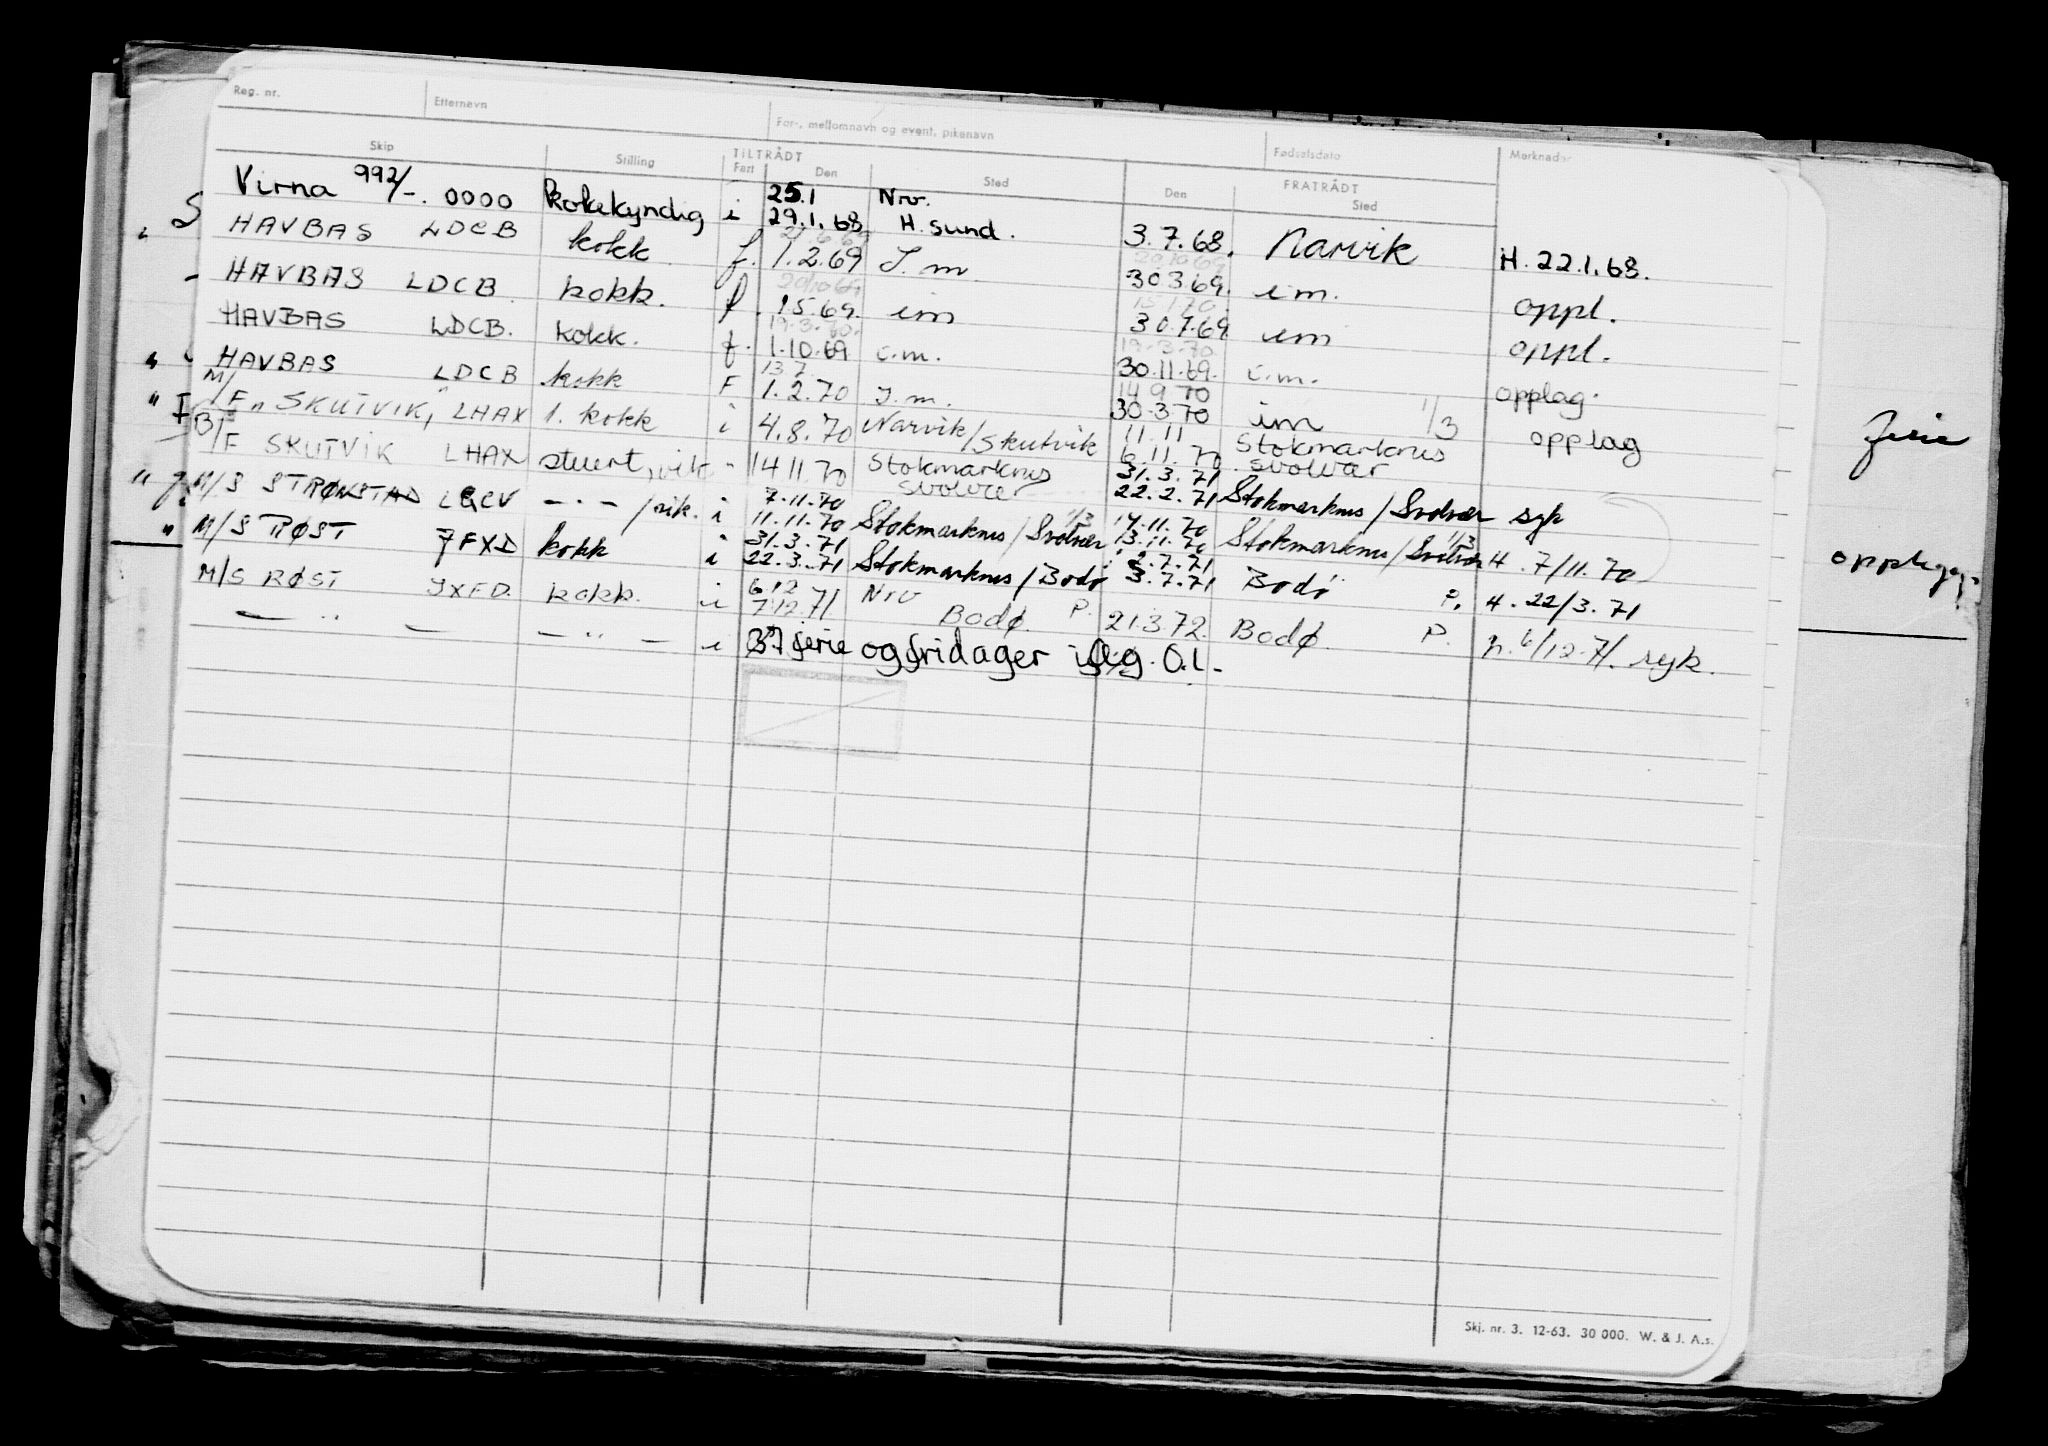 Reg. nr. Etternavn For-, mellomnavn og event. pikenavn Fødselsdato Merknader
Skip Stilling TILTRÅDT Fart Den Sted FRATRÅDT Den Sted
Virna 992/-. 0000 kokkyndig i 25.1 Nrv.
29.1.68 H. sund. 3.7.68. Narvik H. 22.1.68.
HAVBAS LDCB kokk f. 1.2.69 J. m 30.3.69. im. oppl.
HAVBAS LDCB kokk. f. 1.5.69. im 30.7.69 im oppl.
HAVBAS LDCB. kokk. f. 1.10.69 i.m. 30.11.69. i.m. opplag.
HAVBAS LDCB kokk F 1.2.70 J.m. 30.3.70 im 1/3 opplag
M/F „SKUTVIK“ LHAX 1. kokk i 13.7 4.8.70 Narvik/Skutvik 14 9 70
B/F SKUTVIK LHAX stuert, vik " 14 11 70 Stokmarknes Svolvær 11.11 6.11.70 Stokmarknes Svolvær
M/S STRØNSTAD LQCV — · — /vik. i 7.11.70 11.11.70 Stokmarknes/Svolvær 31.3.71 22.2.71 Stokmarknes/Svolvær syk
14.11.70 13.11.70 Stokmarknes/Svolvær H. 7/11.70
M/S RØST JFXD kokk i 31.3.71 22.3.71 Stokmarknes/Bodø 2.7.71 3.7.71 Bodø P. H. 22/3.71
M/S RØST JXFD. kokk. i 6 12 7.12.71 Nrv Bodø P. 21.3.72. Bodø P. h. 6/12-71. syk.
— " — — " — i 37 ferie og fridager iflg. O.l.-
ferie
opplag
Skj. nr. 3. 12-63. 30 000. W. & J. A.s.